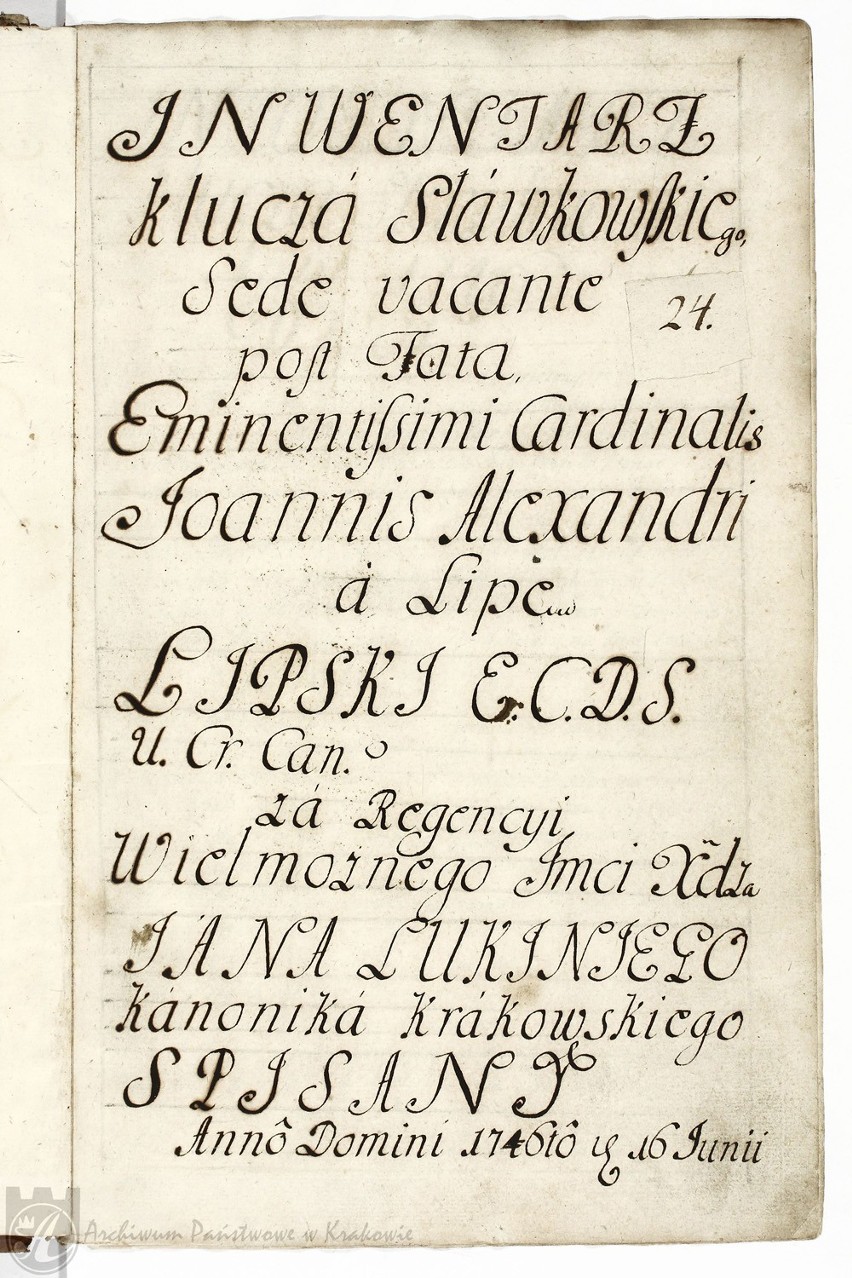 INWENTARZ
kluczá Słáwkowſkiego,
Sede vacante
24.
post Fata,
Eminentiſsimi Cardinalis
Joannis Alexandri
á Lipe
LIPSKI E.C.D.S.
U. Cr. Can.
zá Regencyi
Wielmoznego Jmci Xdza
JANA LUKINIEGO
kánoniká Krákowskiego
SPISANY
Annô Domini 1746tô 16 Junii
Archiwum Państwowe w Krakowie